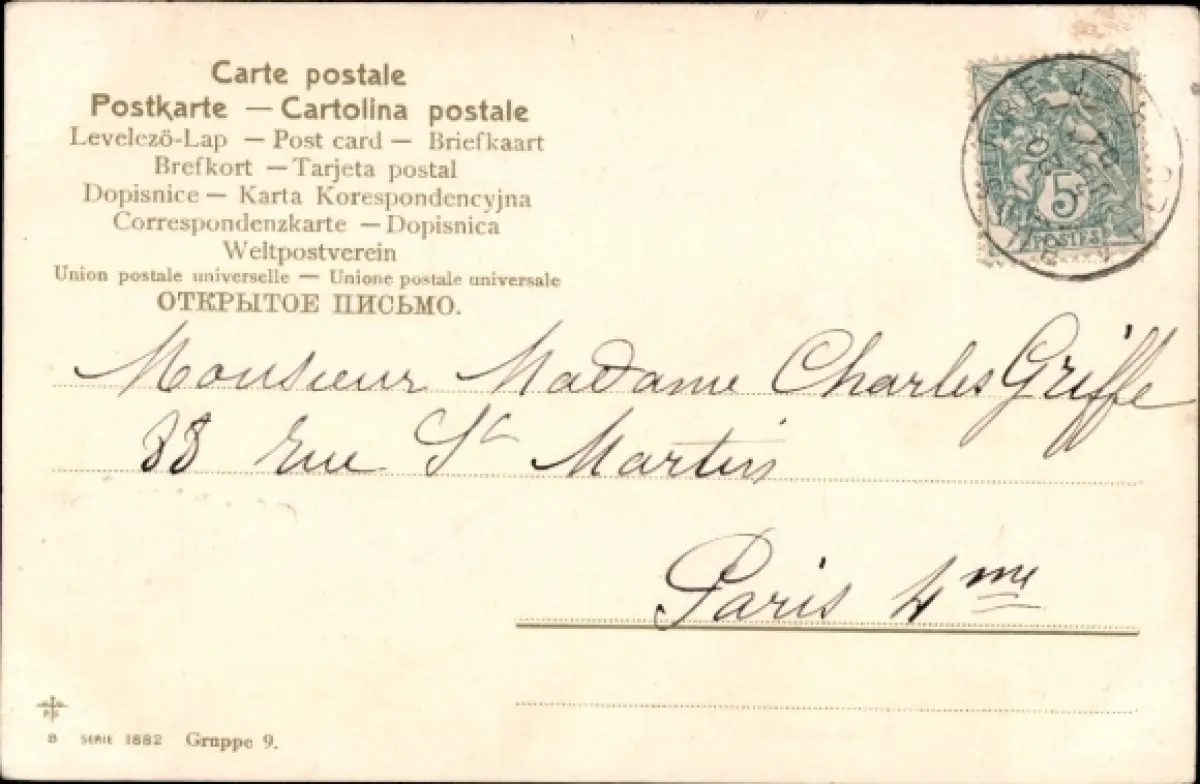 Carte postale
Postkarte — Cartolina postale
Levelező-Lap — Post card — Briefkaart
Brefkort — Tarjeta postal
Dopisnice — Karta Korespondencyjna
Correspondenzkarte — Dopisnica
Weltpostverein
Union postale universelle — Unione postale universale
ОТКРЫТОЕ ПИСЬМО.
5
POSTES
Monsieur Madame Charles Griffe
88 Rue St Martin
Paris 4me
B SERIE 1882 Gruppe 9.